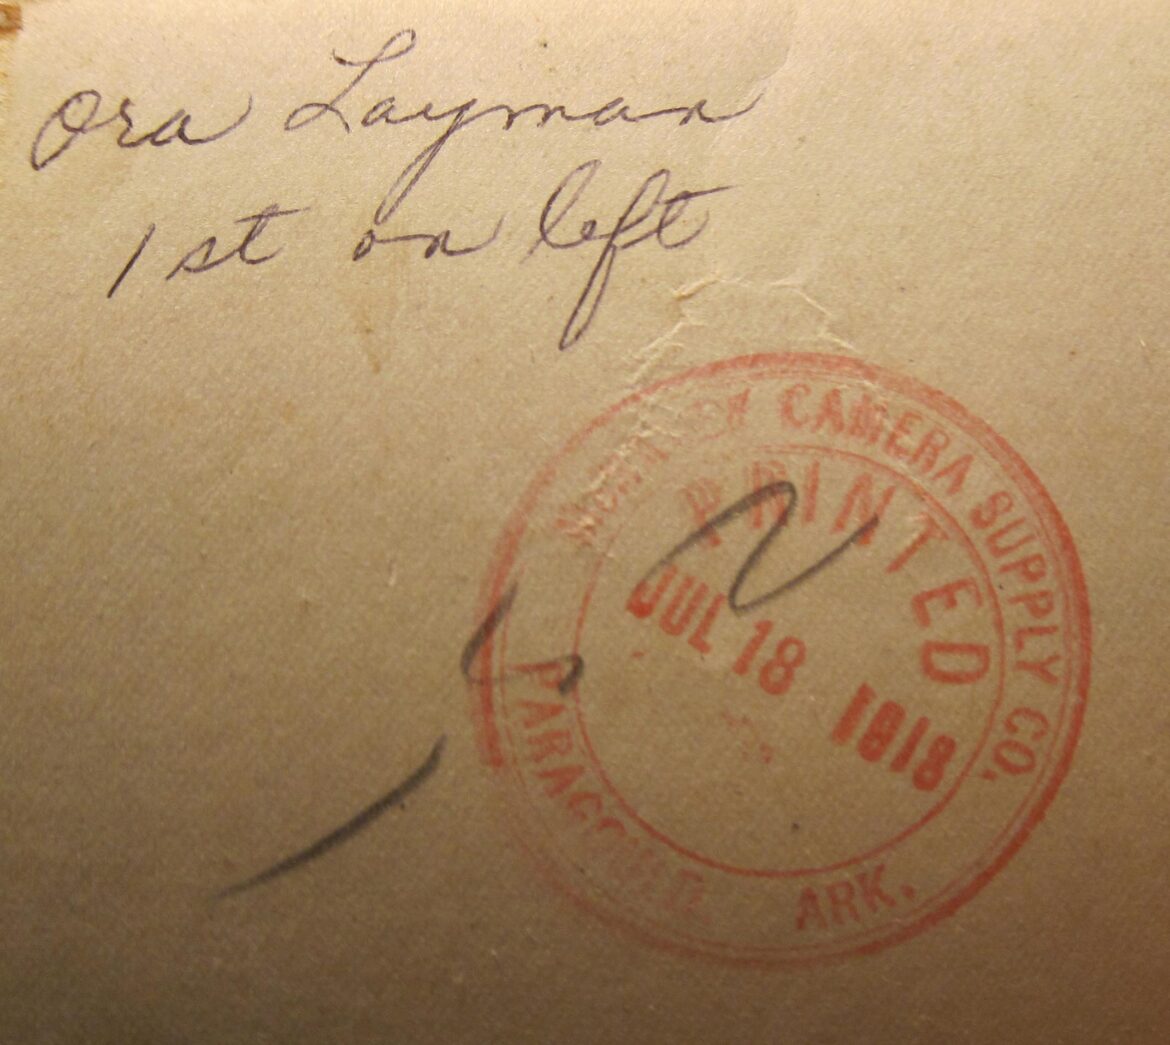 Ora Layman
1st on left
CAMERA SUPPLY CO.
PRINTED
JUL 18 1918
PARAGOULD, ARK.